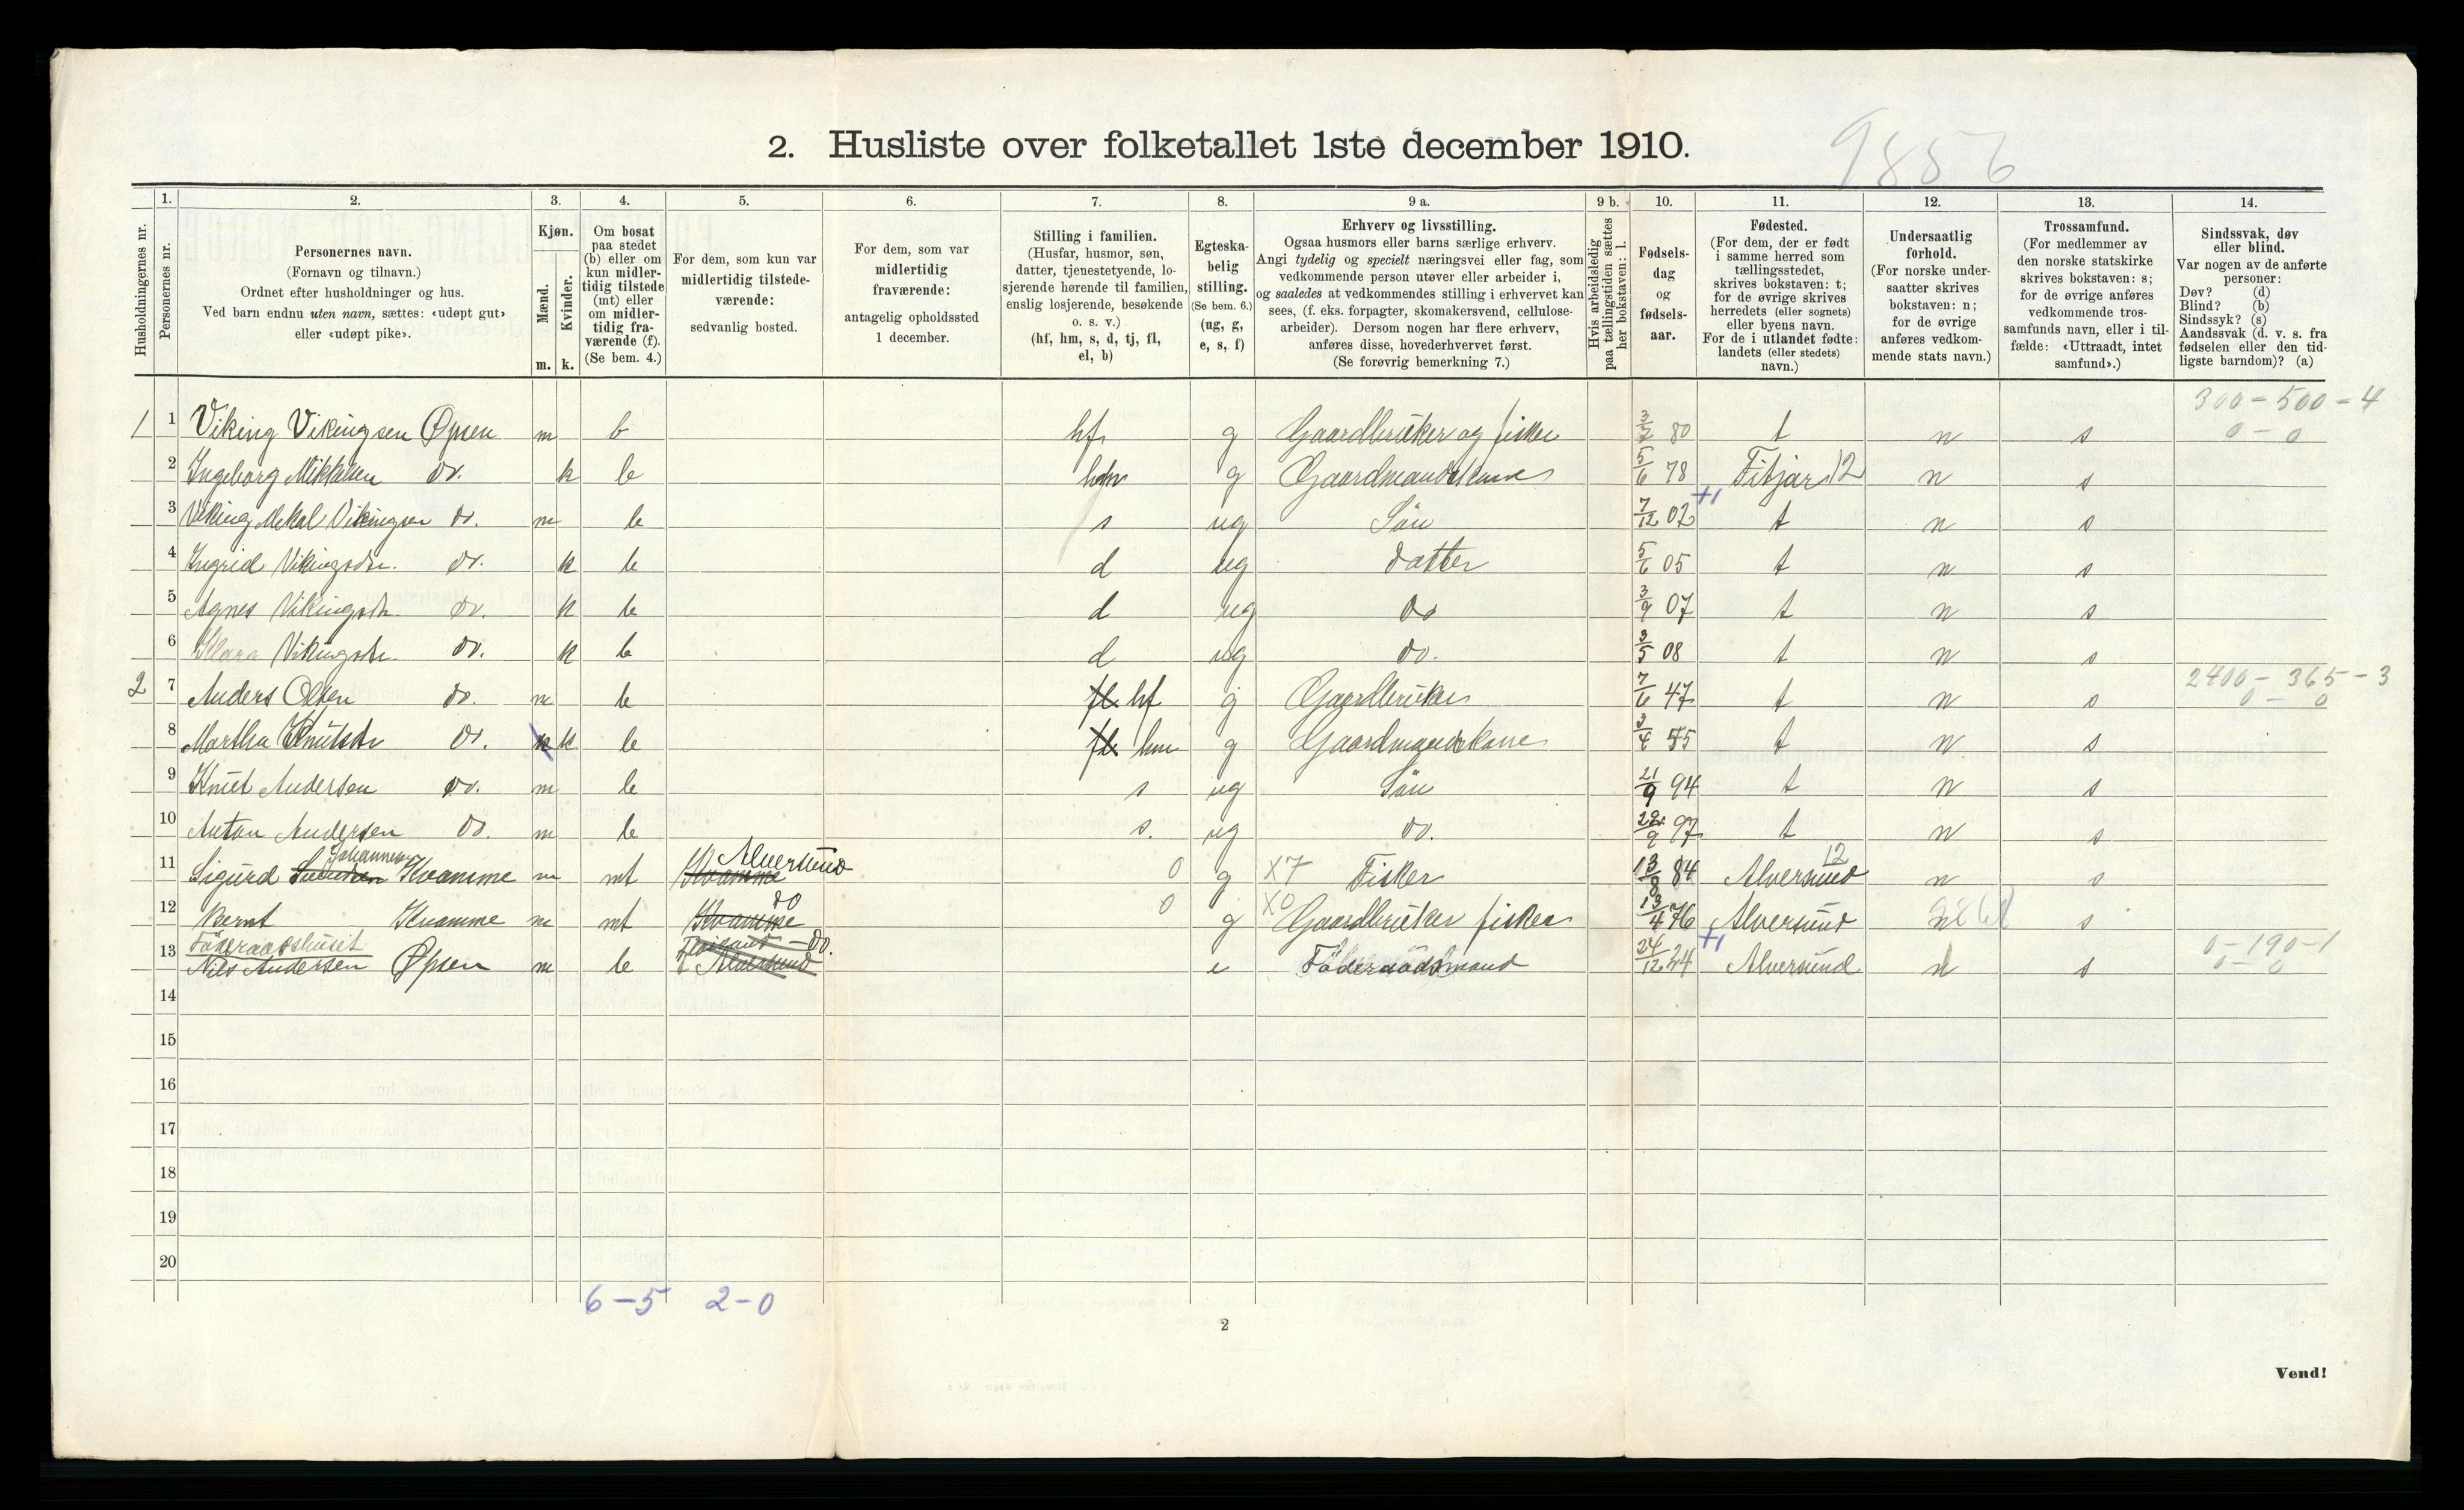 2. Husliste over folketallet 1ste december 1910.
9856
Husholdningernes nr.
1.
Personernes nr.
2.
Personernes navn.
(Fornavn og tilnavn.)
Ordnet efter husholdninger og hus.
Ved barn endnu uten navn, sættes: «udøpt gut»
eller «udøpt pike».
3.
Kjøn.
Mænd.
Kvinder.
m. k.
4.
Om bosat
paa stedet
(b) eller om
kun midler-
tidig tilstede
(mt) eller
om midler-
tidig fra-
værende (f).
(Se bem. 4.)
5.
For dem, som kun var
midlertidig tilstede-
værende:
sedvanlig bosted.
6.
For dem, som var
midlertidig
fraværende:
antagelig opholdssted
1 december.
7.
Stilling i familien.
(Husfar, husmor, søn,
datter, tjenestetyende, lo-
sjerende hørende til familien,
enslig losjerende, besøkende
o. s. v.)
(hf, hm, s, d, tj, fl,
el, b)
8.
Egteska-
belig
stilling.
(Se bem. 6.)
(ug, g,
e, s, f)
9 a.
Erhverv og livsstilling.
Ogsaa husmors eller barns særlige erhverv.
Angi tydelig og specielt næringsvei eller fag, som
vedkommende person utøver eller arbeider i,
og saaledes at vedkommendes stilling i erhvervet kan
sees, (f. eks. forpagter, skomakersvend, cellulose-
arbeider). Dersom nogen har flere erhverv,
anføres disse, hovederhvervet først.
(Se forøvrig bemerkning 7.)
9 b.
Hvis arbeidsledig
paa tællingstiden sættes
her bokstaven: l.
10.
Fødsels-
dag
og
fødsels-
aar.
11.
Fødested.
(For dem, der er født
i samme herred som
tællingsstedet,
skrives bokstaven: t;
for de øvrige skrives
herredets (eller sognets)
eller byens navn.
For de i utlandet fødte:
landets (eller stedets)
navn.)
12.
Undersaatlig
forhold.
(For norske under-
saatter skrives
bokstaven: n;
for de øvrige
anføres vedkom-
mende stats navn.)
13.
Trossamfund.
(For medlemmer av
den norske statskirke
skrives bokstaven: s;
for de øvrige anføres
vedkommende tros-
samfunds navn, eller i til-
fælde: «Uttraadt, intet
samfund».)
14.
Sindssvak, døv
eller blind.
Var nogen av de anførte
personer:
Døv? (d)
Blind? (b)
Sindssyk? (s)
Aandssvak (d. v. s. fra
fødselen eller den tid-
ligste barndom)? (a)
300 - 500 - 4
0 - 0
1 1 Viking Vikingsen Øpsen m b hf g Gaardbruker og fisker 3/7 80 t n s
2 Ingeborg do. k b hm g Gaardmandskone 5/6 78 Fitjar 12 n s
3 Viking Mekal Vikingsen do. m b s ug Sön 7/12 02 +1 t n s
4 Ingrid Vikingsdtr. do. k b d ug datter 5/6 05 t n s
5 Agnes Vikingsdtr. do. k b d ug do 3/9 07 t n s
6 Klara Vikingsdtr. do. k b d ug do. 3/5 08 t n s
2400 - 365 - 3
0 - 0
2 7 Anders Olsen do. m b fl hf g Gaardbruker 7/6 47 t n s
8 Martha Knutsdtr do. k k b fl hm g Gaardmandskone 3/4 55 t n s
9 Knut Andersen do. m b s ug Sön 21/9 94 t n s
10 Anton Andersen do. m b s. ug do. 22/9 97 t n s
Johannes Alversund 12
11 Sigurd Kvamme m mt Kvamme 0 g X7 Fisker 13/8 84 Alversund n s
do
12 Bernt Kvamme m mt Kvamme 0 g X0 Gaardbruker fisker 13/4 76 Alversund n s
Föderaadshuset
do. +1 0 - 190 - 1
0 - 0
13 Nils Andersen Øpsen m b Alversund e Föderaadsmand 24/12 24 Alversund n s
14
15
16
17
18
19
20
6 - 5 2 - 0
2
Vend!